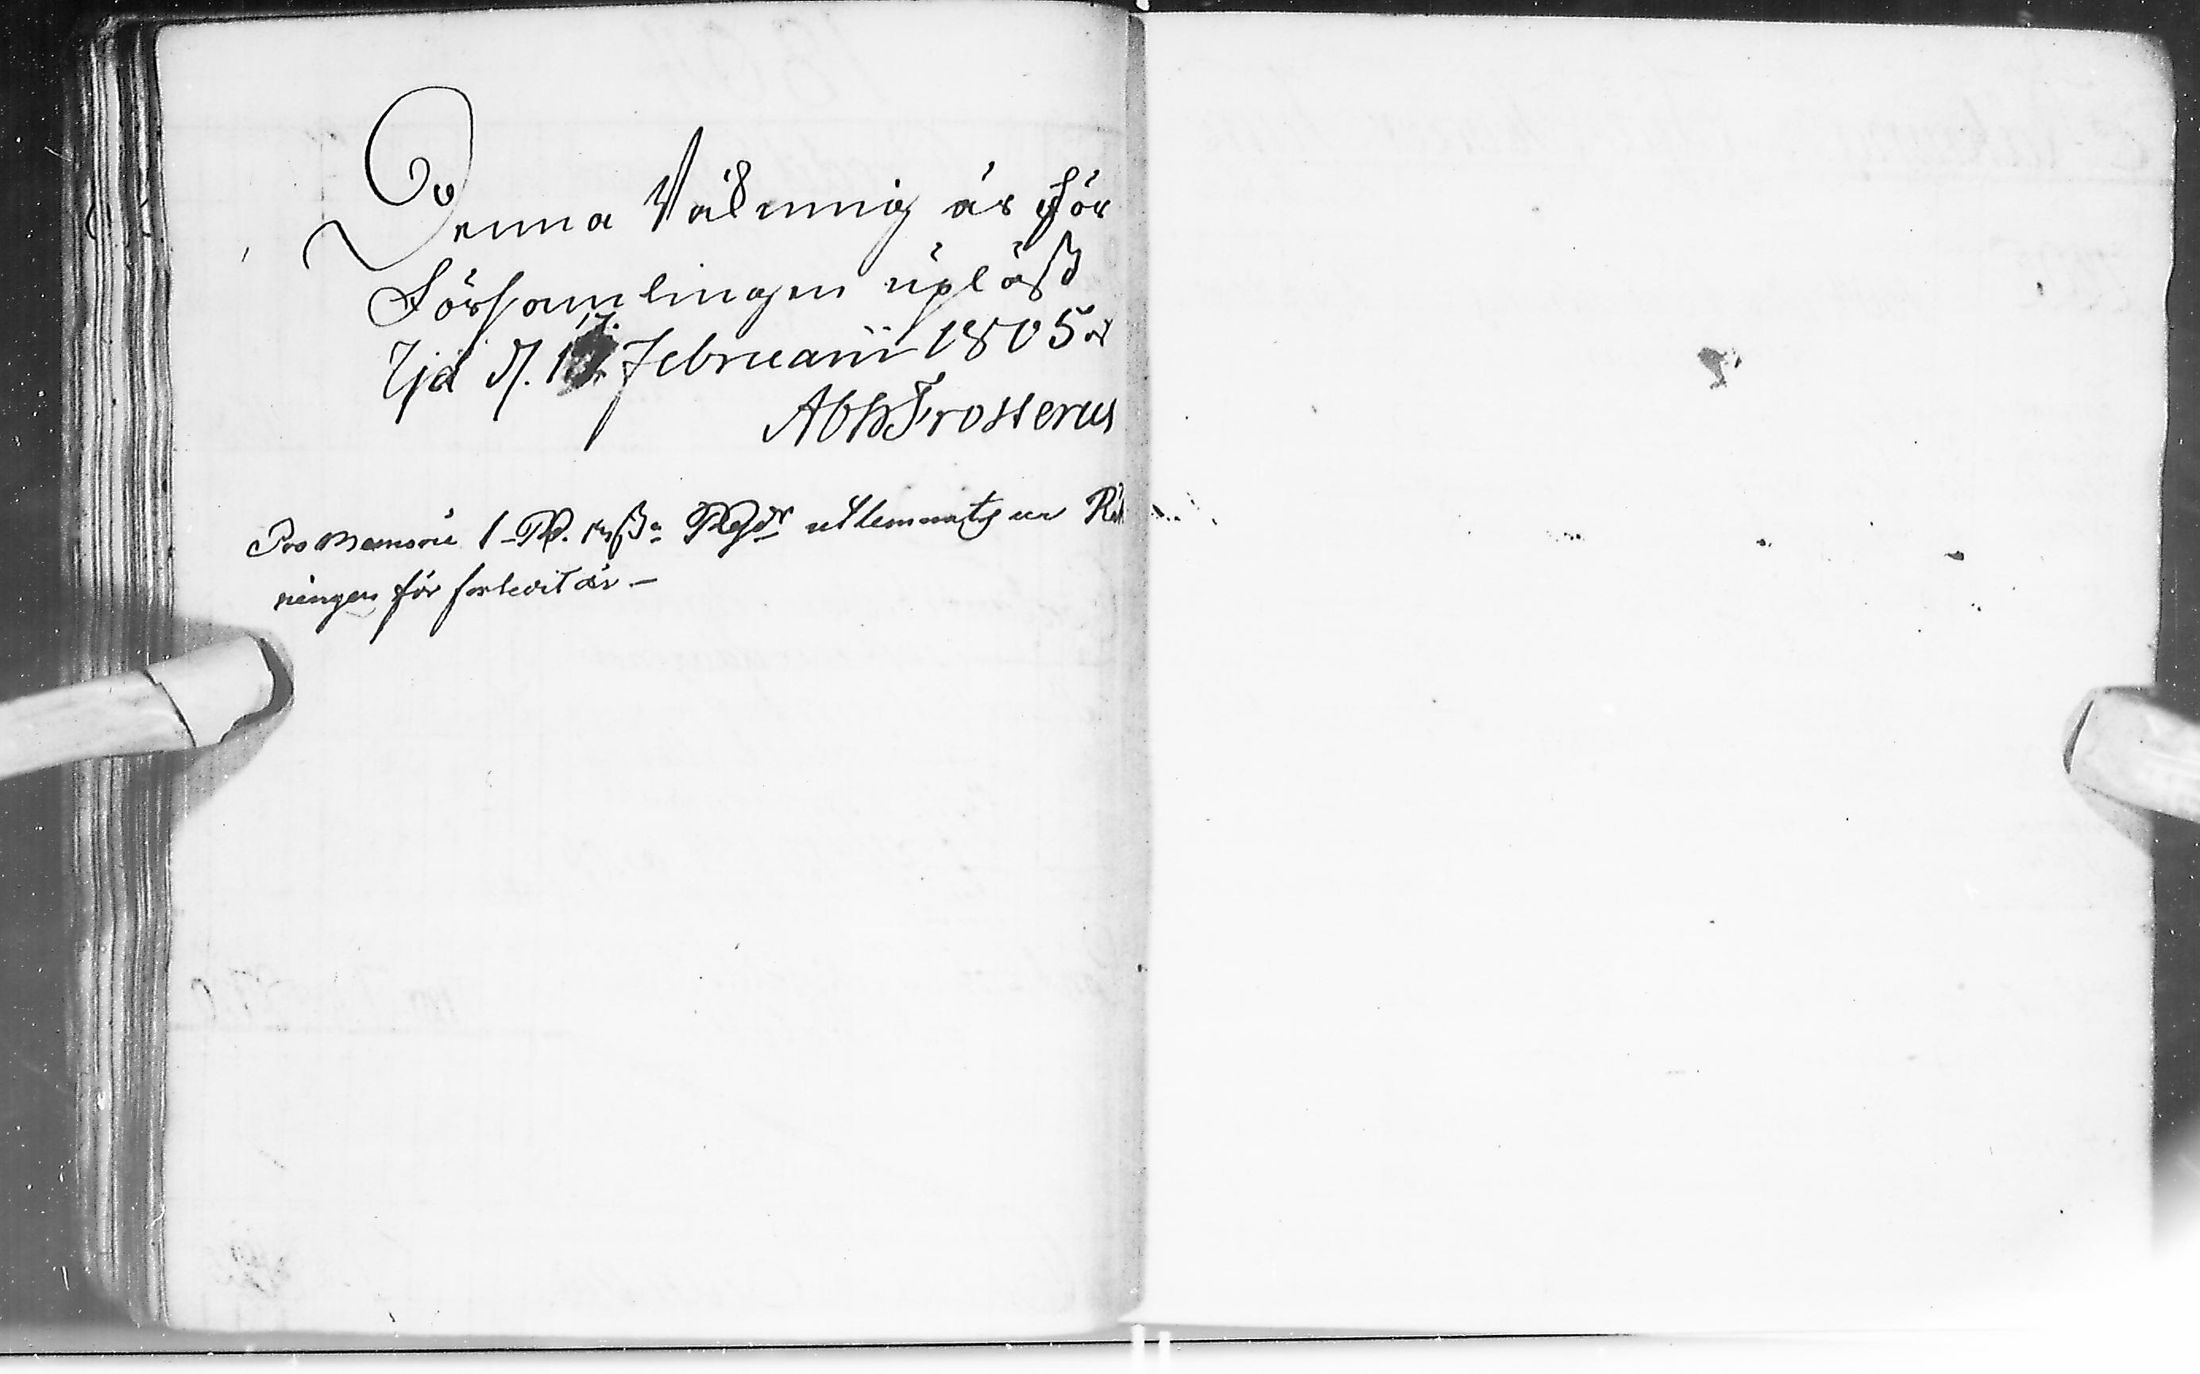 Denna Räkning är för
Församlingen upläst
Ijå d. 17 Februarii 1805
Abh Frosterus
Pro Memoria 1 Rd. Rgds utlemnats ur Räk
ningen för förledit år.—